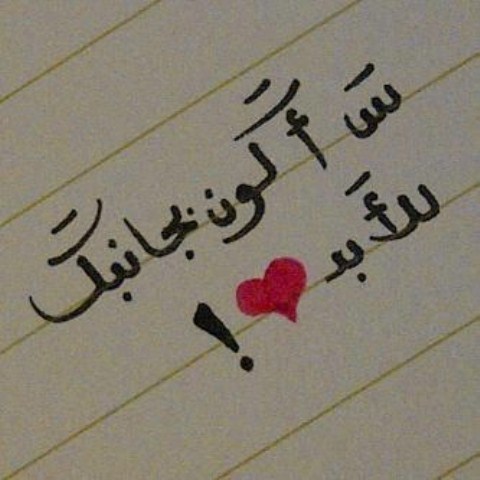 سَ أكون بجانبكَ
للأَبد ❤ !